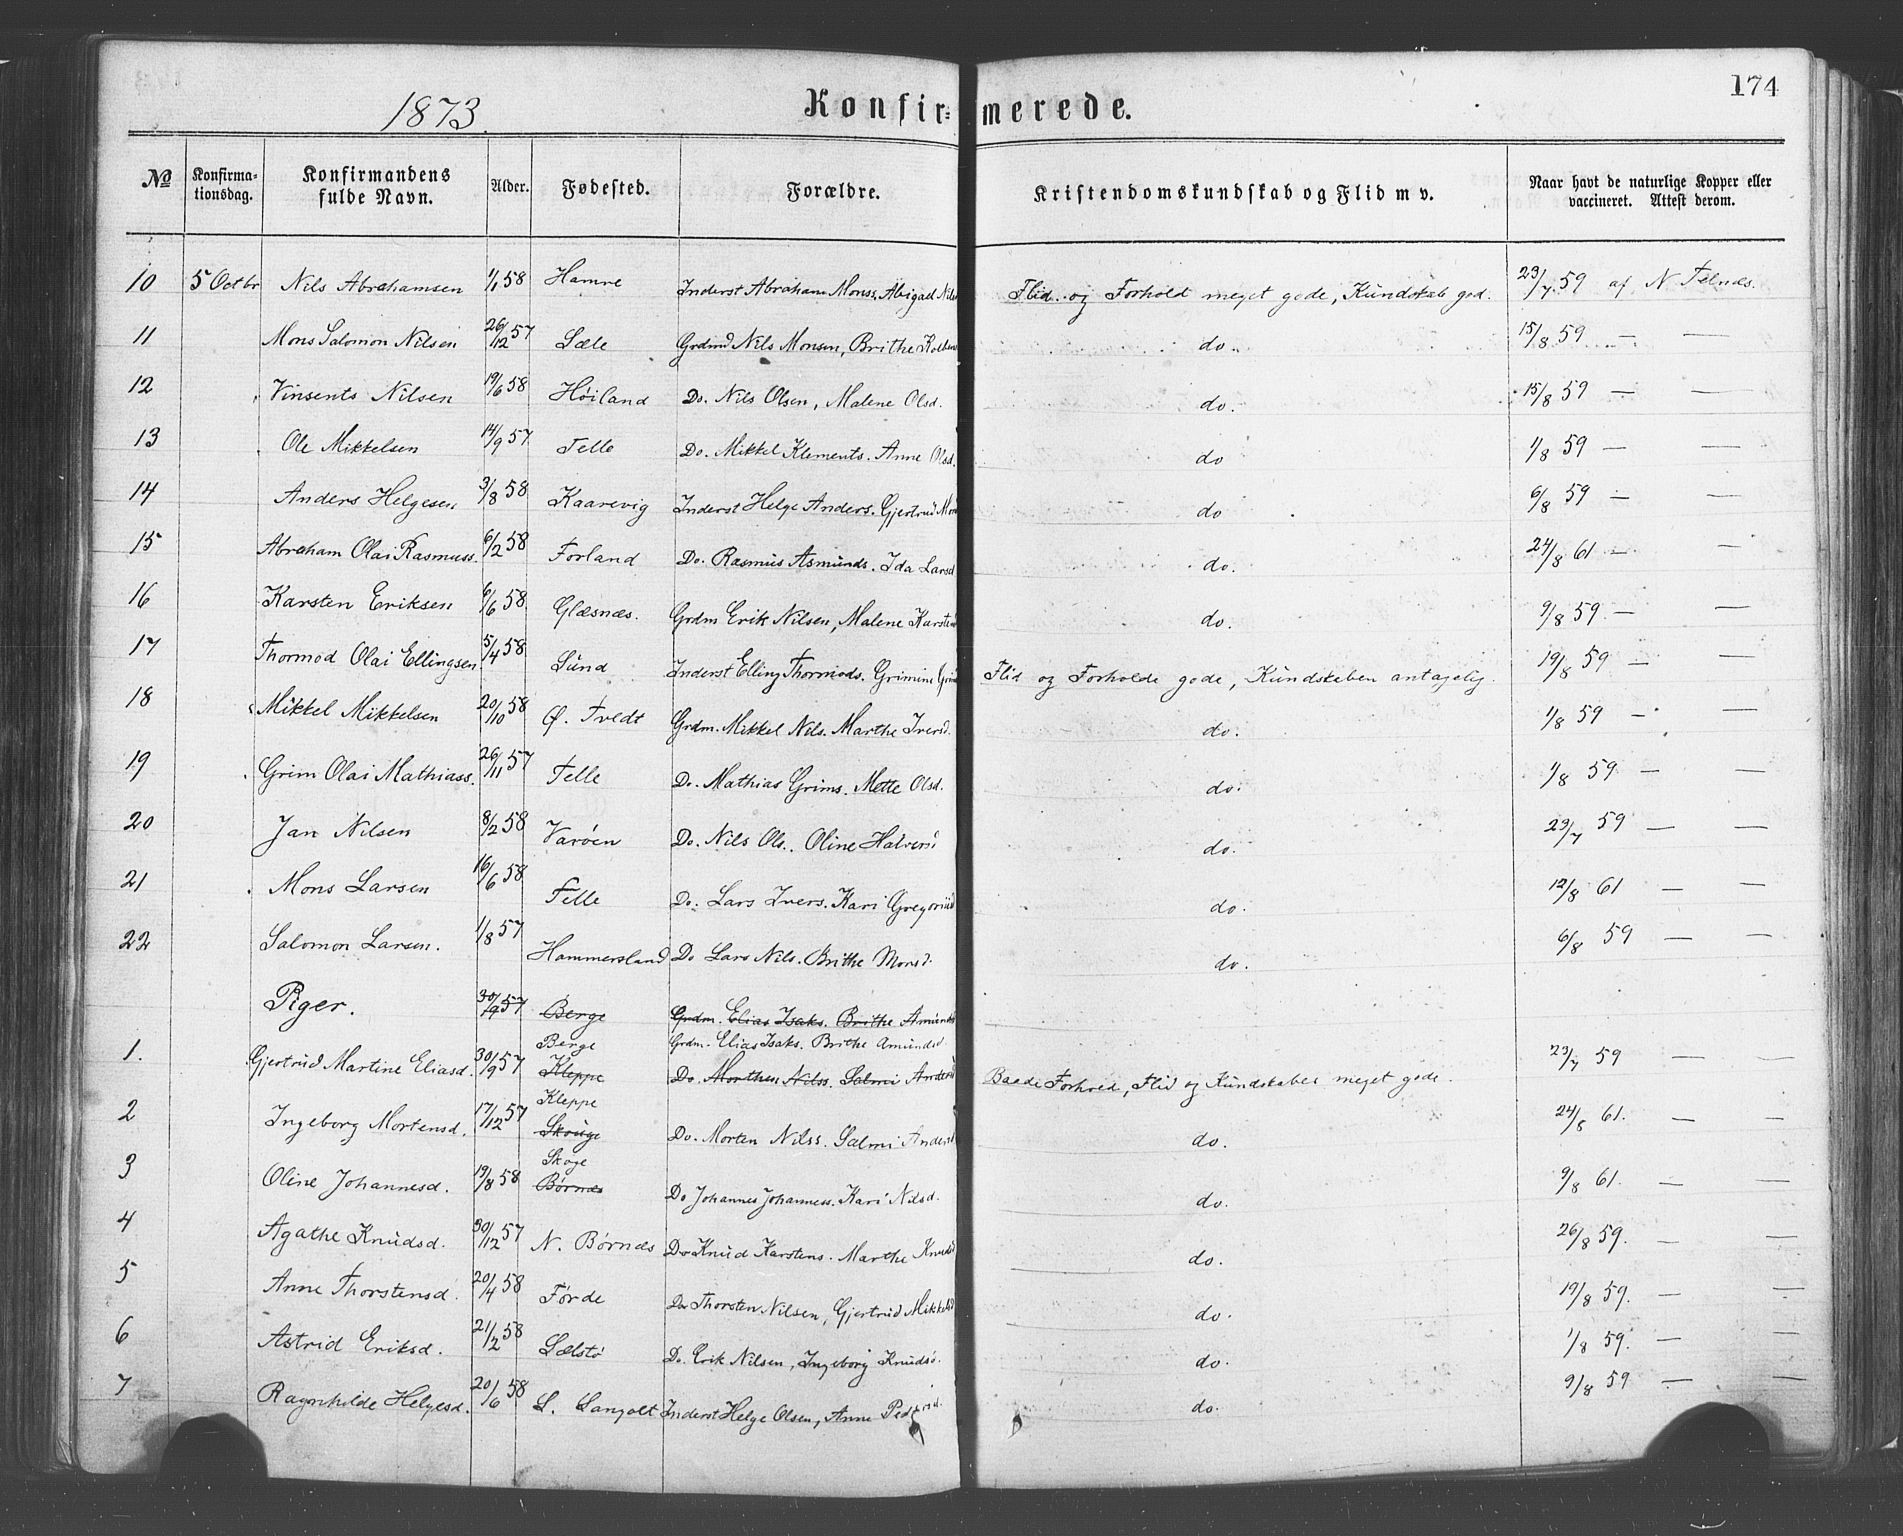 174
1873.
Konfir- merede.
No Konfirma-tionsdag. Konfirmandens fulde Navn. Alder. Fødested. Forældre. Kristendomskundskab og Flid m v. Naar havt de naturlige Kopper eller vaccineret. Attest derom.
10 5 Octbr Nils Abrahamsen 1/1 58 Hamre Inderst Abraham Monss, Abigael Nils Flid og Forhold meget gode, Kundskab god. 23/7 59 af N
11 Mons Salomon Nilsen 26/12 57 Sæle Grdmd Nils Monsen, Brithe do. 15/8 59 — —
12 Vinsents Nilsen 19/6 58 Høiland Do. Nils Olsen, Malene Olsd. do. 15/8 59 — —
13 Ole Mikkelsen 14/9 57 Telle Do. Mikkel Klements. Anne Olsd. do 1/8 59 — —
14 Anders Helgesen 3/8 58 Kaarevig Inderst Helge Anders. Gjertrud Mons do 6/8 59 — —
15 Abraham Olai Rasmuss. 6/2 58 Forland Do. Rasmus Asmunds. Ida Larsd do. 24/8 61 — —
16 Karsten Eriksen 6/6 58 Glæsnæs. Grdm Erik Nilsen, Malene Karstens do. 9/8 59 — —
17 Thormod Olai Ellingsen 5/4 58 Sund Inderst Elling Thormods. Grimine Flid og Forholde gode, Kundskaben antagelig. 19/8 59 — —
18 Mikkel Mikkelsen 20/10 58 Ø. Tvedt Grdm. Mikkel Nils. Marthe Iversd. do. 1/8 59 — —
19 Grim Olai Mathiass. 26/11 57 Telle Do. Mathias Grims. Mette Olsd. do. 1/8 59 — —
20 Jan Nilsen 8/2 58 Varøen Do. Nils Ols. Oline Halversd do. 23/7 59 — —
21 Mons Larsen 16/6 58 Telle Do. Lars Ivers. Kari do. 12/8 61 — —
22 Salomon Larsen. 1/8 57 Hammersland Do Lars Nils. Brithe Monsd. do. 6/8 59 — —
Piger. 30/9 57 Berge Grdm. Elias Isaks. Brithe Amunds
Berge Grdm. Elias Isaks. Brithe Amundsd
1. Gjertrud Martine Eliasd. 30/9 57 Kleppe Do. Morthen Nilss. Salmi Andersd Baade Forhold, Flid og Kundskaber meget gode. 23/7 59 — —
Kleppe
2 Ingeborg Mortensd. 17/12 57 Skouge Do. Morten Nilss. Salmi Anders do. 24/8 61. — —
Skoge
3 Oline Johannesd. 19/8 58 Børnæs Do Johannes Johanness. Kari Nilsd. do. 9/8 61. — —
4 Agathe Knudsd. 30/12 57 N. Børnæs Do Knud Karstens. Marthe Knudsd do. 26/8 59. — —
5 Anne Thorstensd. 20/4 58 Førde Do Thorsten Nilsen, Gjertrud Mikkelsd do. 19/8 59. — —
6 Astrid Eriksd. 21/2 58 Sælstø Do. Erik Nilsen, Ingeborg Knudsd. do. 1/8 59. — —
7 Ragnhilde Helgesd. 20/6 58 L. Sangolt Inderst Helge Olsen, Anne do. 9/8 59 — —